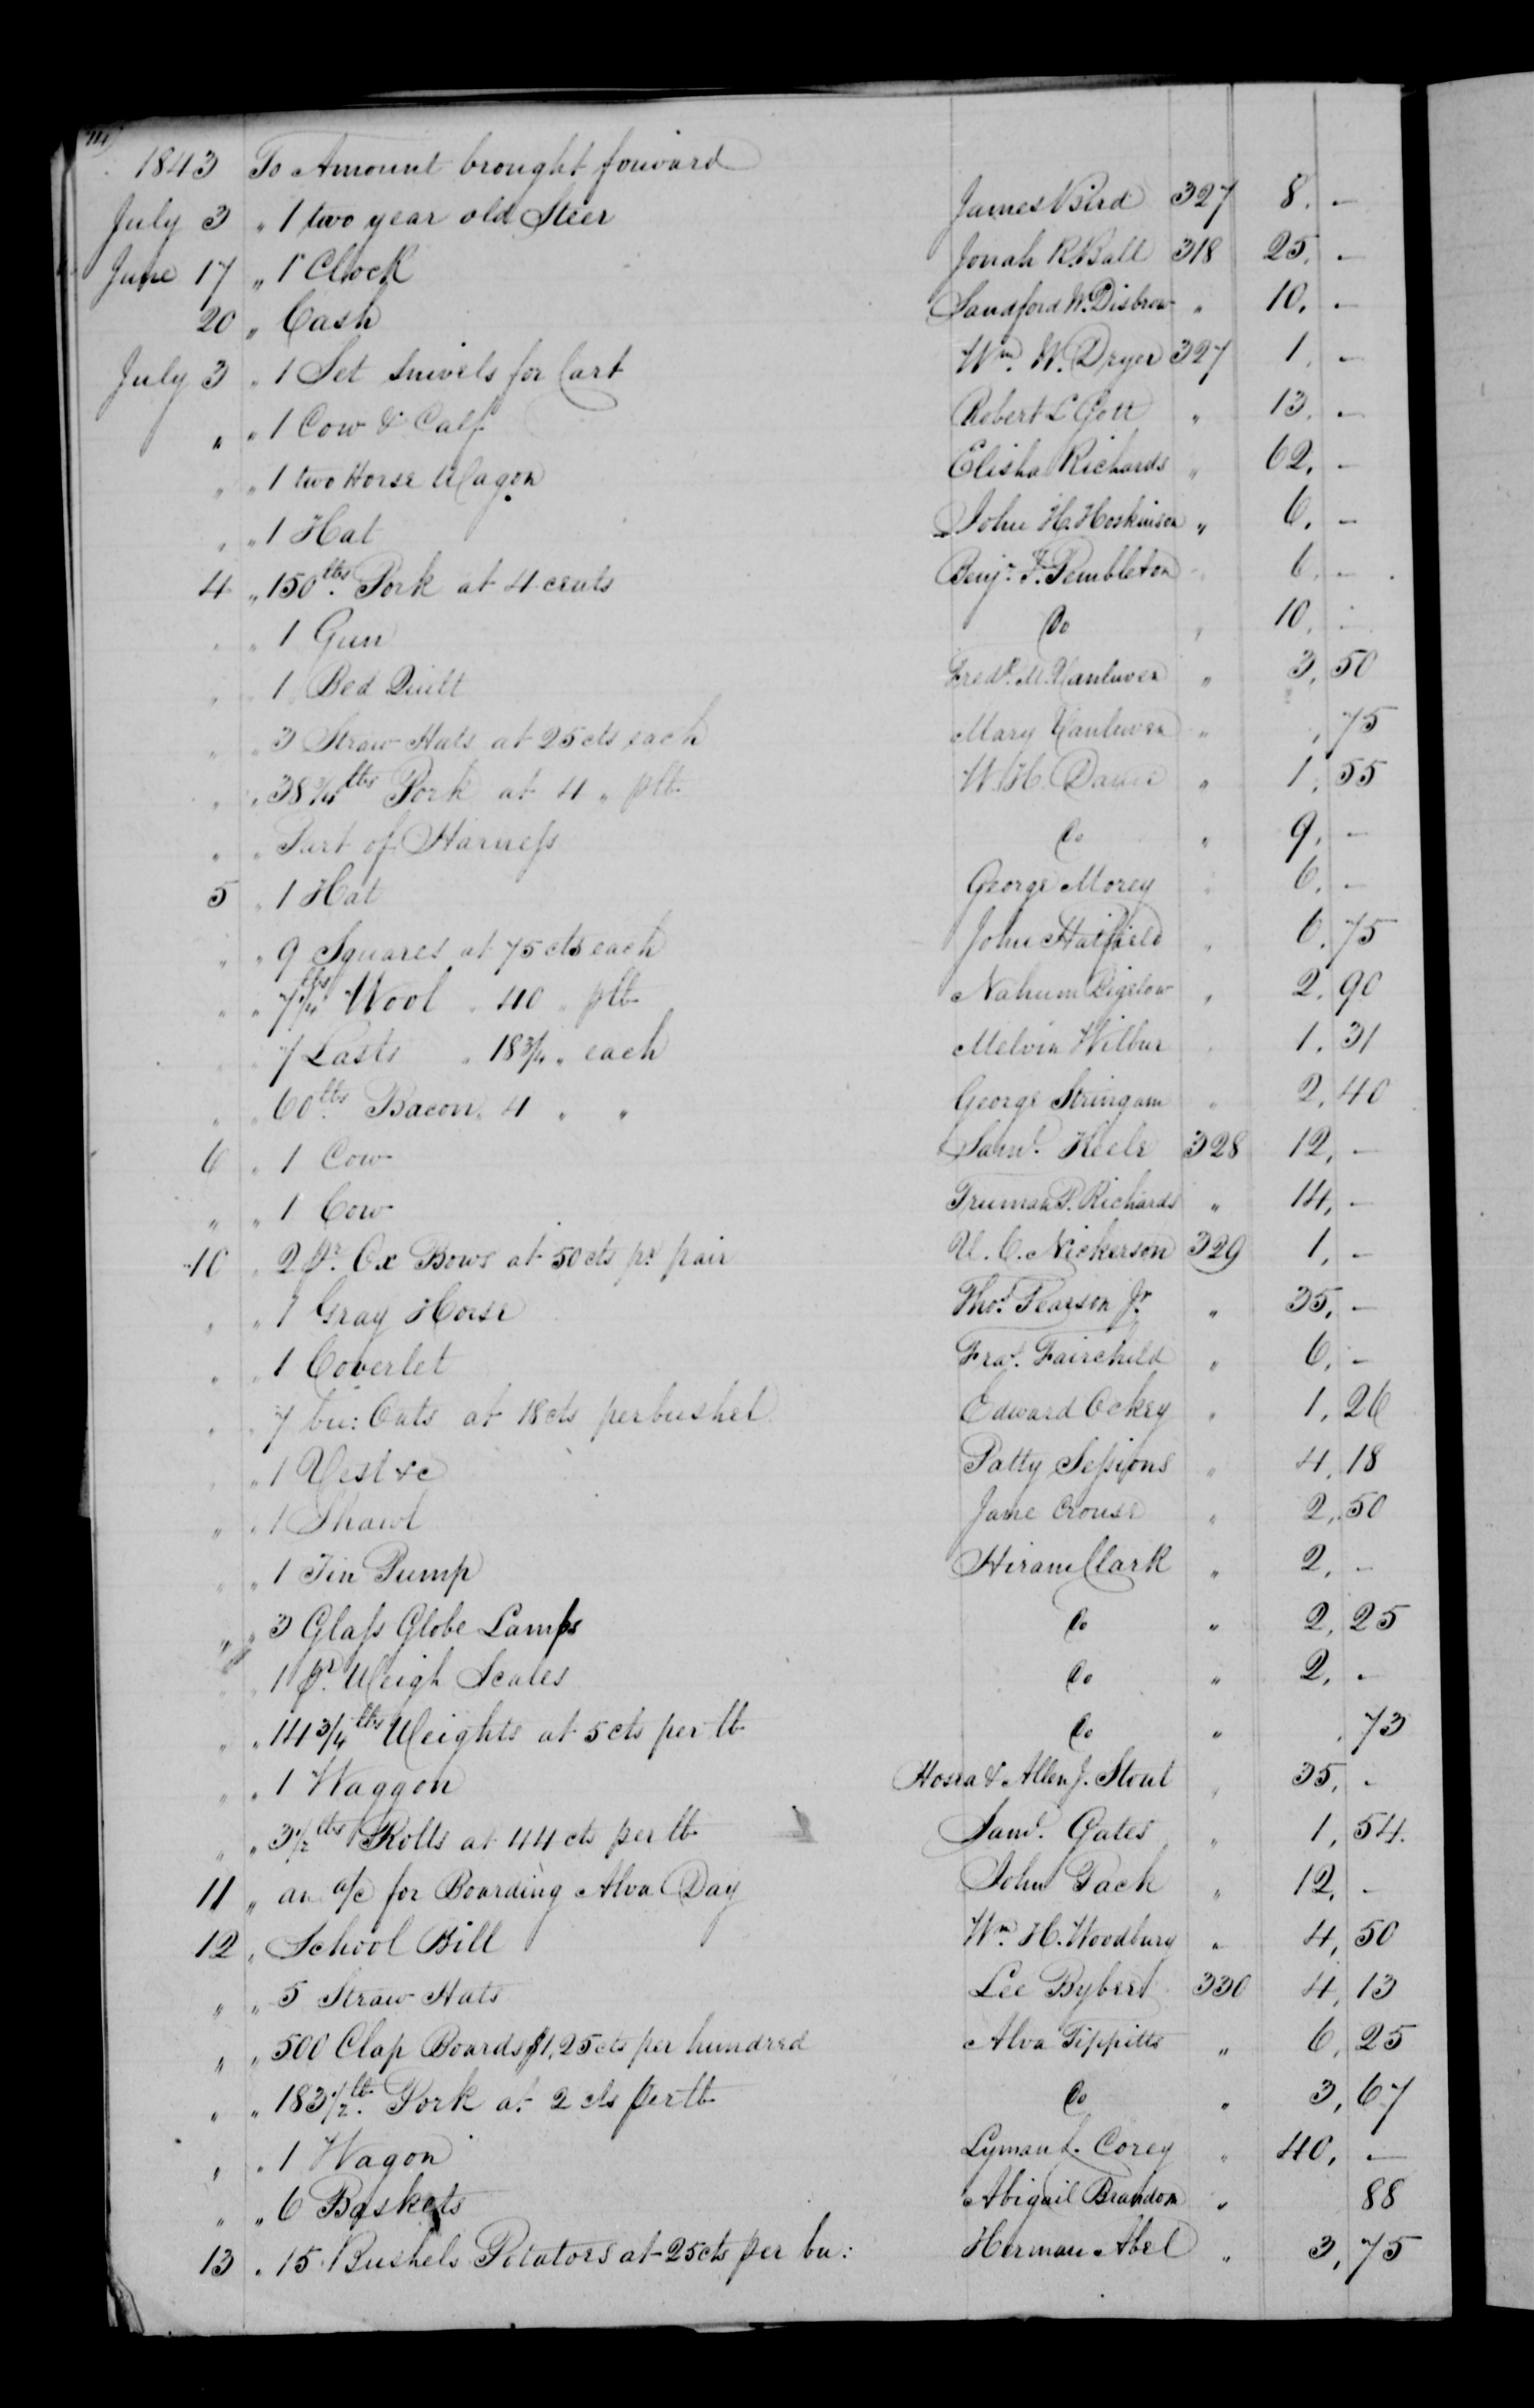 1843 To Amount brought forward
July 3 " 1 two year old Steer James Bird 327 8. –
June 17 " 1 Clock Jonah R. Ball 318 25. –
20 " Cash Sandford W. Disbrow " 10. –
July 3 " 1 Set Swivels for Cart Wm. W. Dryer 327 1. –
" " 1 Cow & Calf Robert L Gott " 13. –
" " 1 two Horse Wagon Elisha Richards " 62. –
" " 1 Hat John H. Hoskinson " 6. –
4 " 150 lbs. Pork at 4 cents Benjn. F. Pembleton " 6. –
" " 1 Gun Do " 10. –
" " 1 Bed Quilt Fredk. M. Vanluven " 3, 50
" " 3 Straw Hats at 25 cts each Mary Vanluven " , 75
" " 38 3/4 lbs Pork at 4 " plb W. H. " 1, 55
" " Part of Harness Do " 9. –
5 " 1 Hat George Morey " 6. –
" " 9 Squares at 75 cts each John Hatfield " 6. 75
" " 7 1/4 lbs Wool " 40 " plb Nahum Bigelow " 2. 90
" " 7 Lasts " 18 3/4 " each Melvin Wilbur " 1. 31
" " 60 lbs. Bacon " 4 " " George Stringam " 2. 40
6 " 1 Cow Saml. Keele 328 12, –
" " 1 Cow Truman P. Richards " 14, –
10 " 2 pr. Ox Bows at 50 cts pr. pair U. C. Nickerson 329 1, –
" " 1 Gray Horse Thos. Pearson Jr. " 35, –
" " 1 Coverlet Fras. Fairchild " 6, –
" " 7 bu: Oats at 18 cts per bushel Edward Ockey " 1, 26
" " 1 Vest &c Patty Sessions " 4, 18
" " 1 Shawl Jane Crouse " 2, 50
" " 1 Tin Pump Hiram Clark " 2, –
" " 3 Glass Globe Lamps Do " 2, 25
" " 1 pr. Weigh Scales Do " 2, –
" " 14 3/4 lbs Weights at 5 cts per lb Do " , 73
" " 1 Waggon Hosea & Allen J. Stout " 35, –
" " 3 1/2 lbs Rolls at 44 cts per lb Saml. Gates " 1, 54.
11 " an a/c for Boarding Alva Day John Pack " 12, –
12 " School Bill Wm. H. Woodbury " 4, 50
" " 5 Straw Hats Lee Bybert 330 4, 13
" " 500 Clap Boards $1,25 cts per hundred Alva Tippitts " 6, 25
" " 183 1/2 lb. Pork at 2 cts per lb Do " 3, 67
" " 1 Wagon Lyman L. Corey " 40, –
" " 6 Baskets Abigail Brandon " 88
13 " 15 Bushels Potatoes at 25 cts per bu: Herman Abel " 3, 75